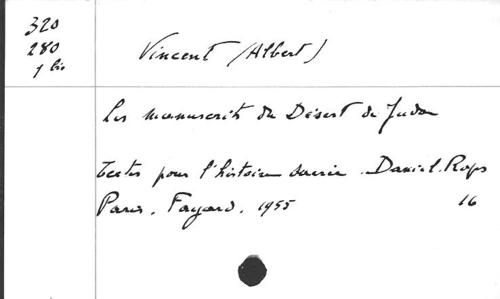 320
280
1 bis
Vincent (Albert)
Les manuscrits du Désert de Juda
Textes pour l'histoire sacrée. Daniel. Rops
Paris. Fayard. 1955 16